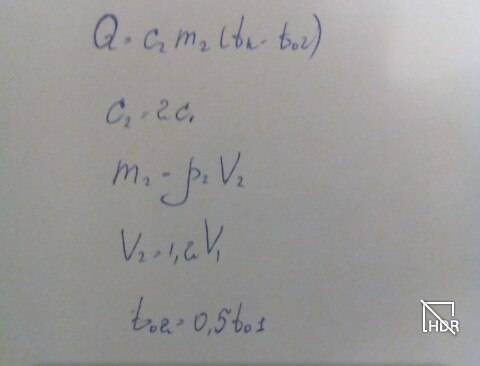 Q = c₂ m₂ (tк - t₀₂)
c₂ = 2c₁
m₂ = ρ₂ V₂
V₂ = 1,2V₁
t₀₂ = 0,5t₀₁
HDR